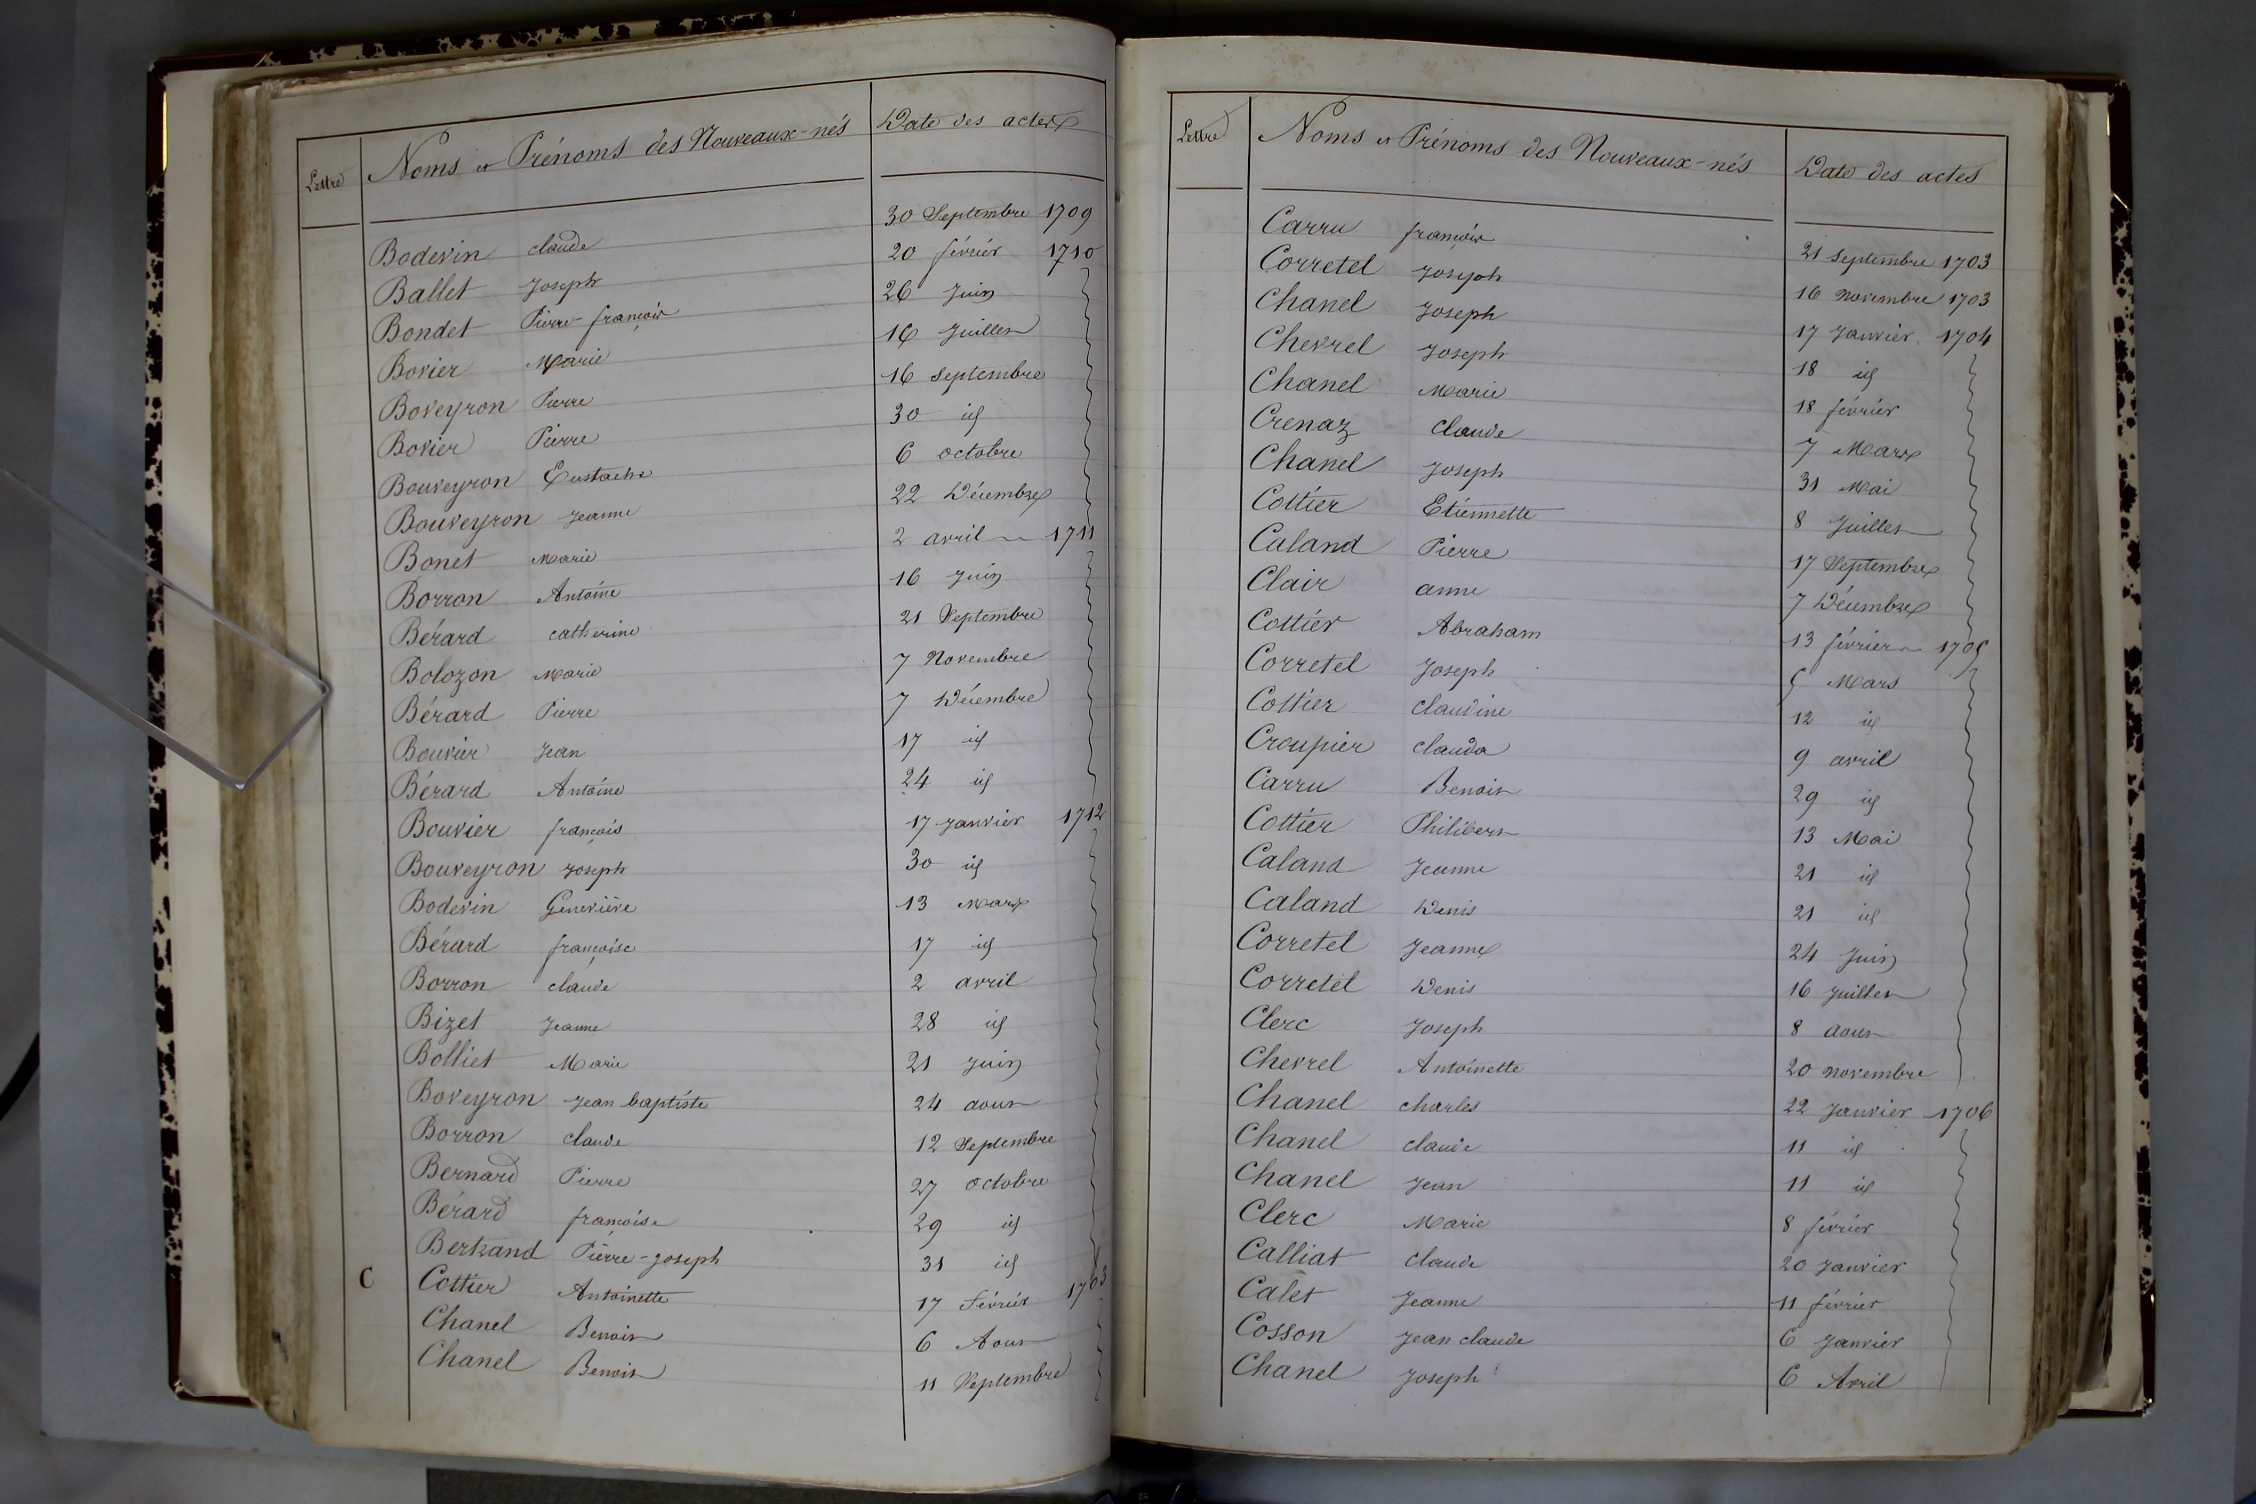 Lettre Noms et Prénoms des Nouveaux-nés Date des actes
Bodevin claude 30 Septembre 1709
Ballet Joseph 20 février 1710
Bondet Pierre-françois 26 Juin
Bovier Marie 16 Juillet
Boveyron Pierre 16 septembre
Bovier Pierre 30 id
Bouveyron Eustache 6 octobre
Bouveyron Jeanne 22 Décembre
Bonet Marie 2 avril 1711
Borron Antoine 16 Juin
Bérard catherine 21 Septembre
Bolozon Marie 7 Novembre
Bérard Pierre 7 Décembre
Bouvier Jean 17 id
Bérard Antoine 24 id
Bouvier françois 17 Janvier 1712
Bouveyron Joseph 30 id
Bodevin Geneviève 13 Mars
Bérard françoise 17 id
Borron claude 2 avril
Bizet Jeanne 28 id
Bolliet Marie 21 Juin
Boveyron Jean baptiste 24 aout
Borron claude 12 Septembre
Bernard Pierre 27 octobre
Bérard françoise 29 id
Bertrand Pierre-Joseph 31 id
C Cottier Antoinette 17 février 1703
Chanel Benoit 6 Aout
Chanel Benoit 11 Septembre
Lettre Noms et Prénoms des Nouveaux-nés Date des actes
Carru françois 21 septembre 1703
Corretel Joseph 16 Novembre 1703
Chanel Joseph 17 Janvier 1704
Chevrel Joseph 18 id
Chanel Marie 18 février
Crenaz Claude 7 Mars
Chanel Joseph 31 Mai
Cottier Etiennette 8 Juillet
Caland Pierre 17 Septembre
Clair anne 7 Décembre
Cottier Abraham 13 février 1705
Corretel Joseph 5 Mars
Cottier claudine 12 id
Croupier clauda 9 avril
Carru Benoit 29 id
Cottier Philibert 13 Mai
Caland Jeanne 21 id
Caland Denis 21 id
Corretel Jeanne 24 Juin
Corretel Denis 16 Juillet
Clerc Joseph 8 aout
Chevrel Antoinette 20 novembre
Chanel charles 22 Janvier 1706
Chanel claude 11 id
Chanel Jean 11 id
Clerc Marie 8 février
Calliat claude 20 Janvier
Calet Jeanne 11 février
Cosson Jean claude 6 Janvier
Chanel Joseph 6 Avril